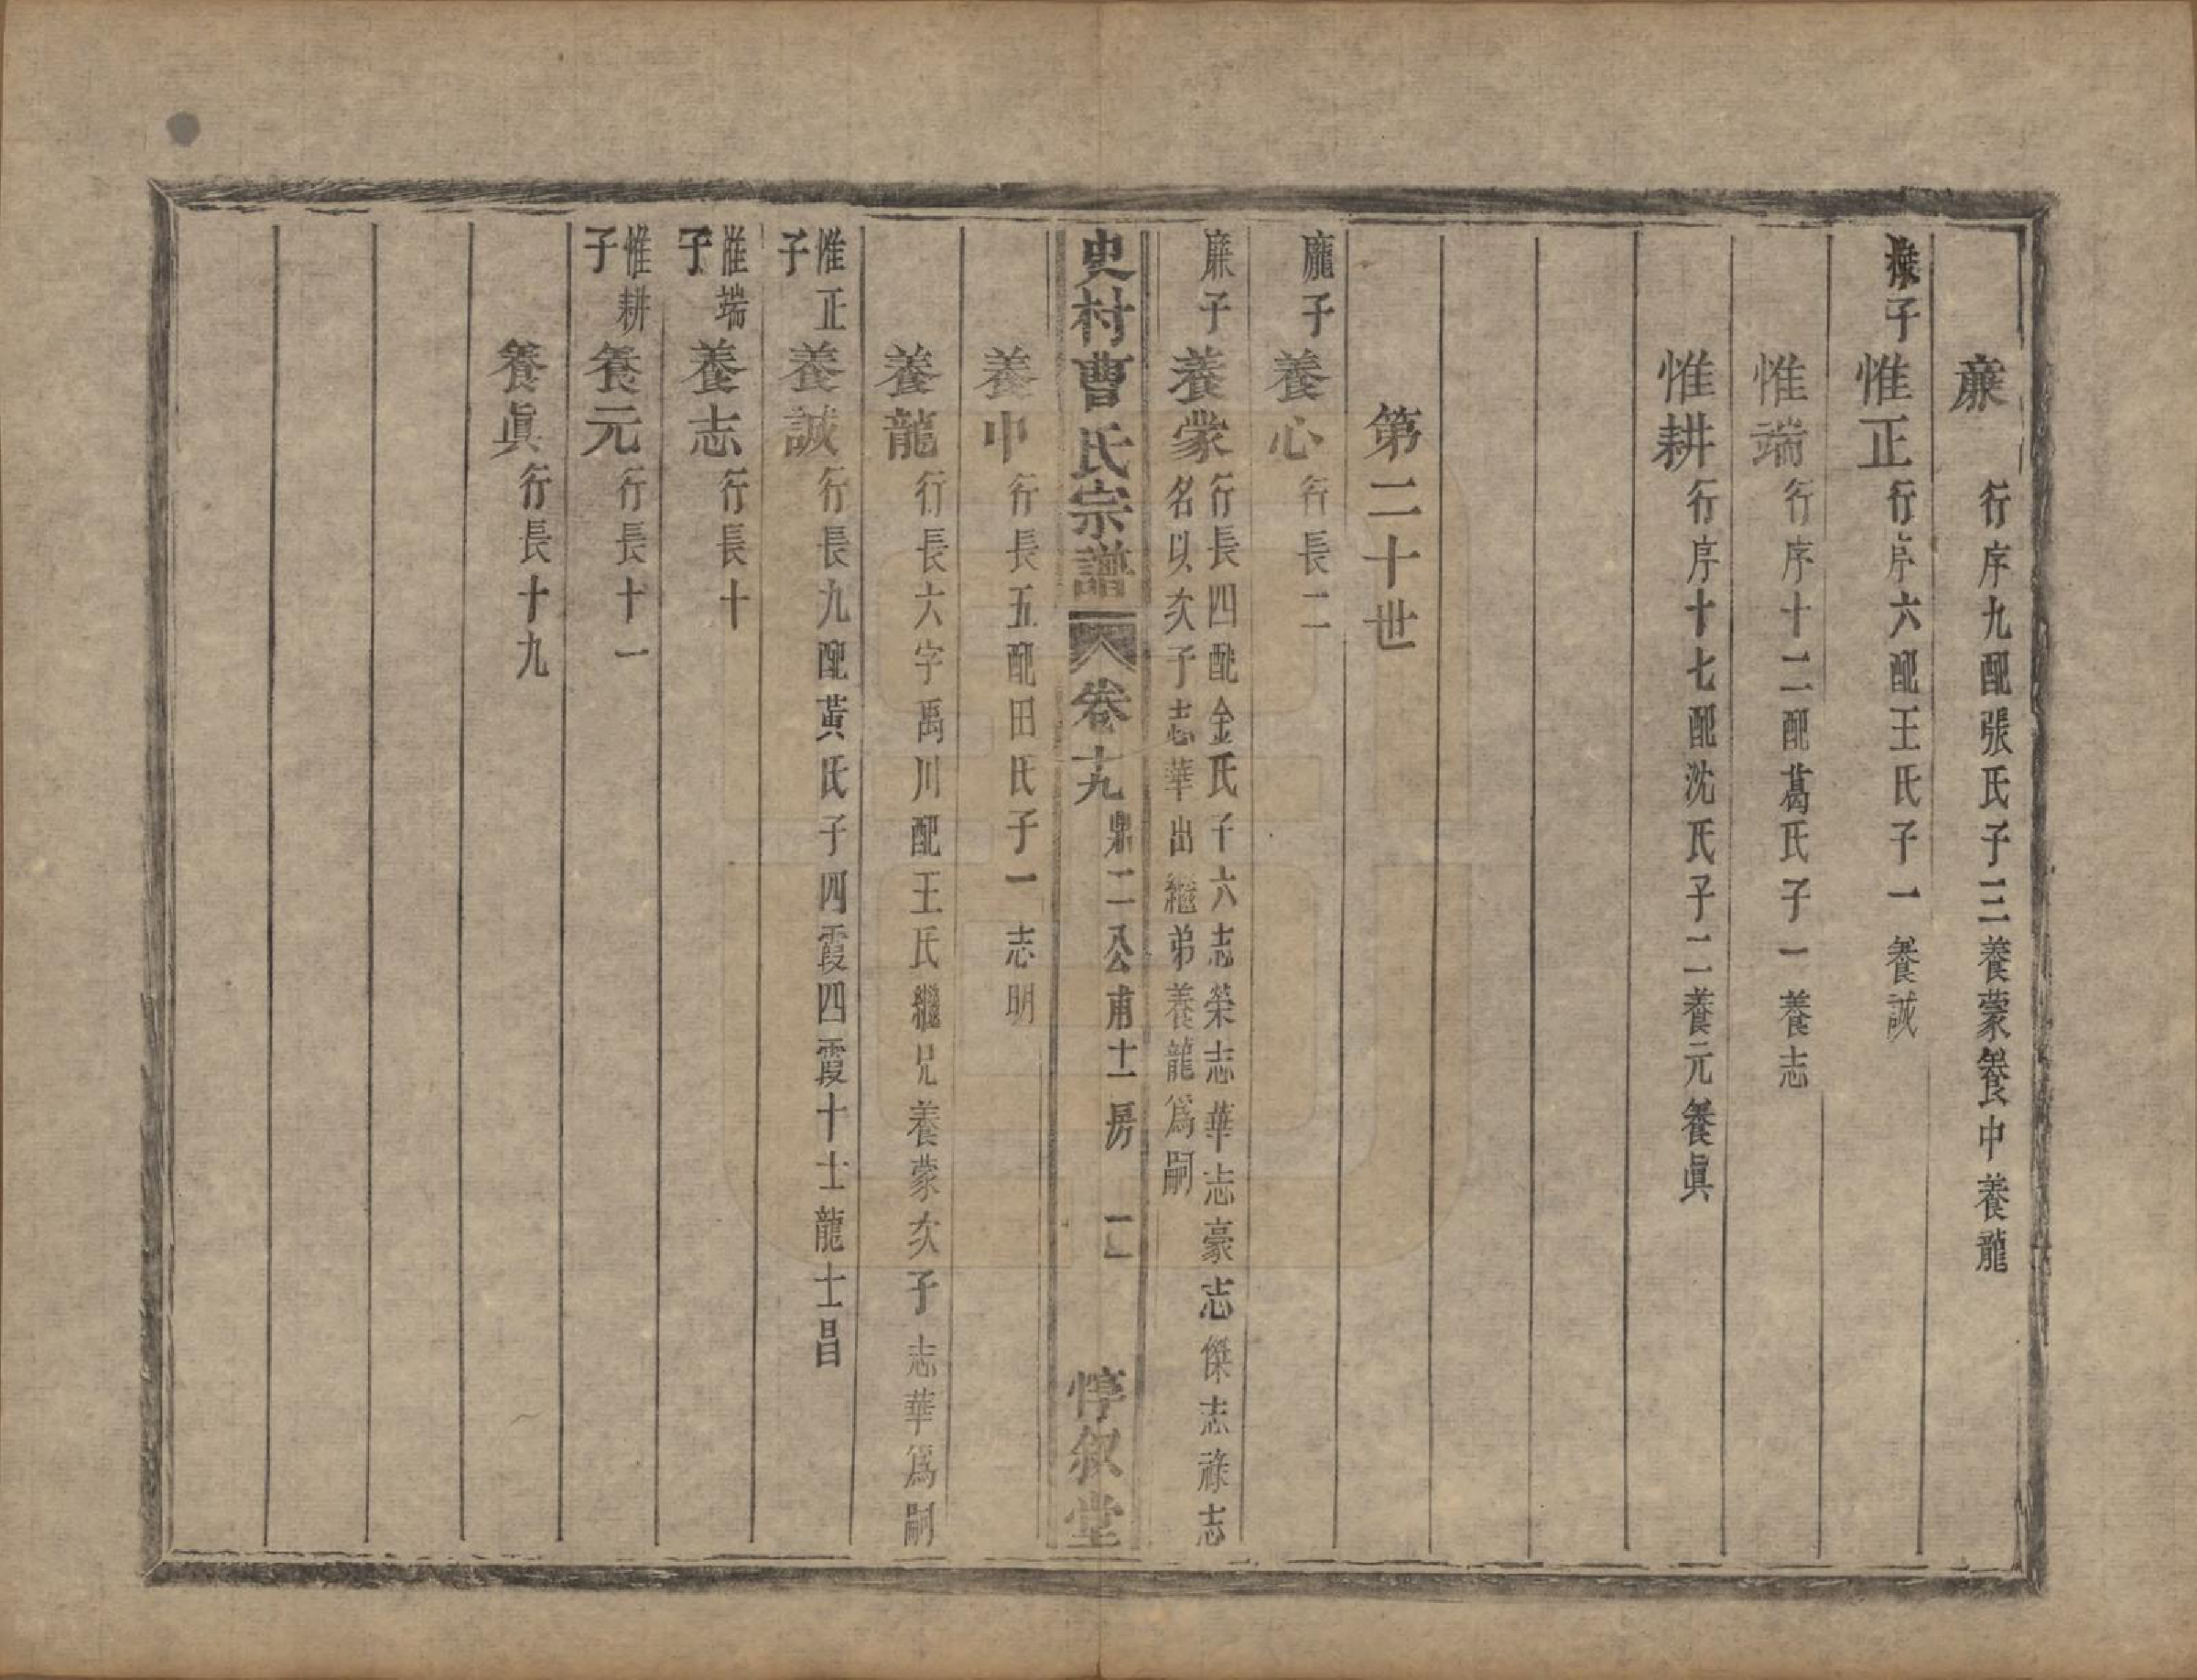 廉　行序九配張氏子三養蒙養中養龍
子惟正行序六配王氏子一養誠
惟端行序十二配葛氏子一養志
惟耕行序十七配沈氏子二養元養眞
第二十世
龐子養心行長二
廉子養蒙行長四配金氏子六志榮志華志豪志傑志祿志
名以次子志華出繼弟養龍爲嗣
史村曹氏宗譜 卷十九 鼎二公甫士房 二 惇叙堂
養中行長五配田氏子一志明
養龍行長六字禹川配王氏繼兄養蒙次子志華爲嗣
惟正子養誠行長九配黃氏子四霞四霞十士龍士昌
惟端子養志行長十
惟耕子養元行長十一
養眞行長十九